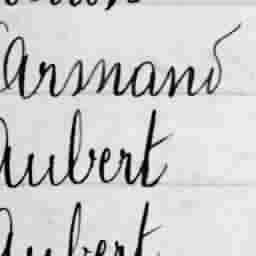 Armand
Aubert
Aubert